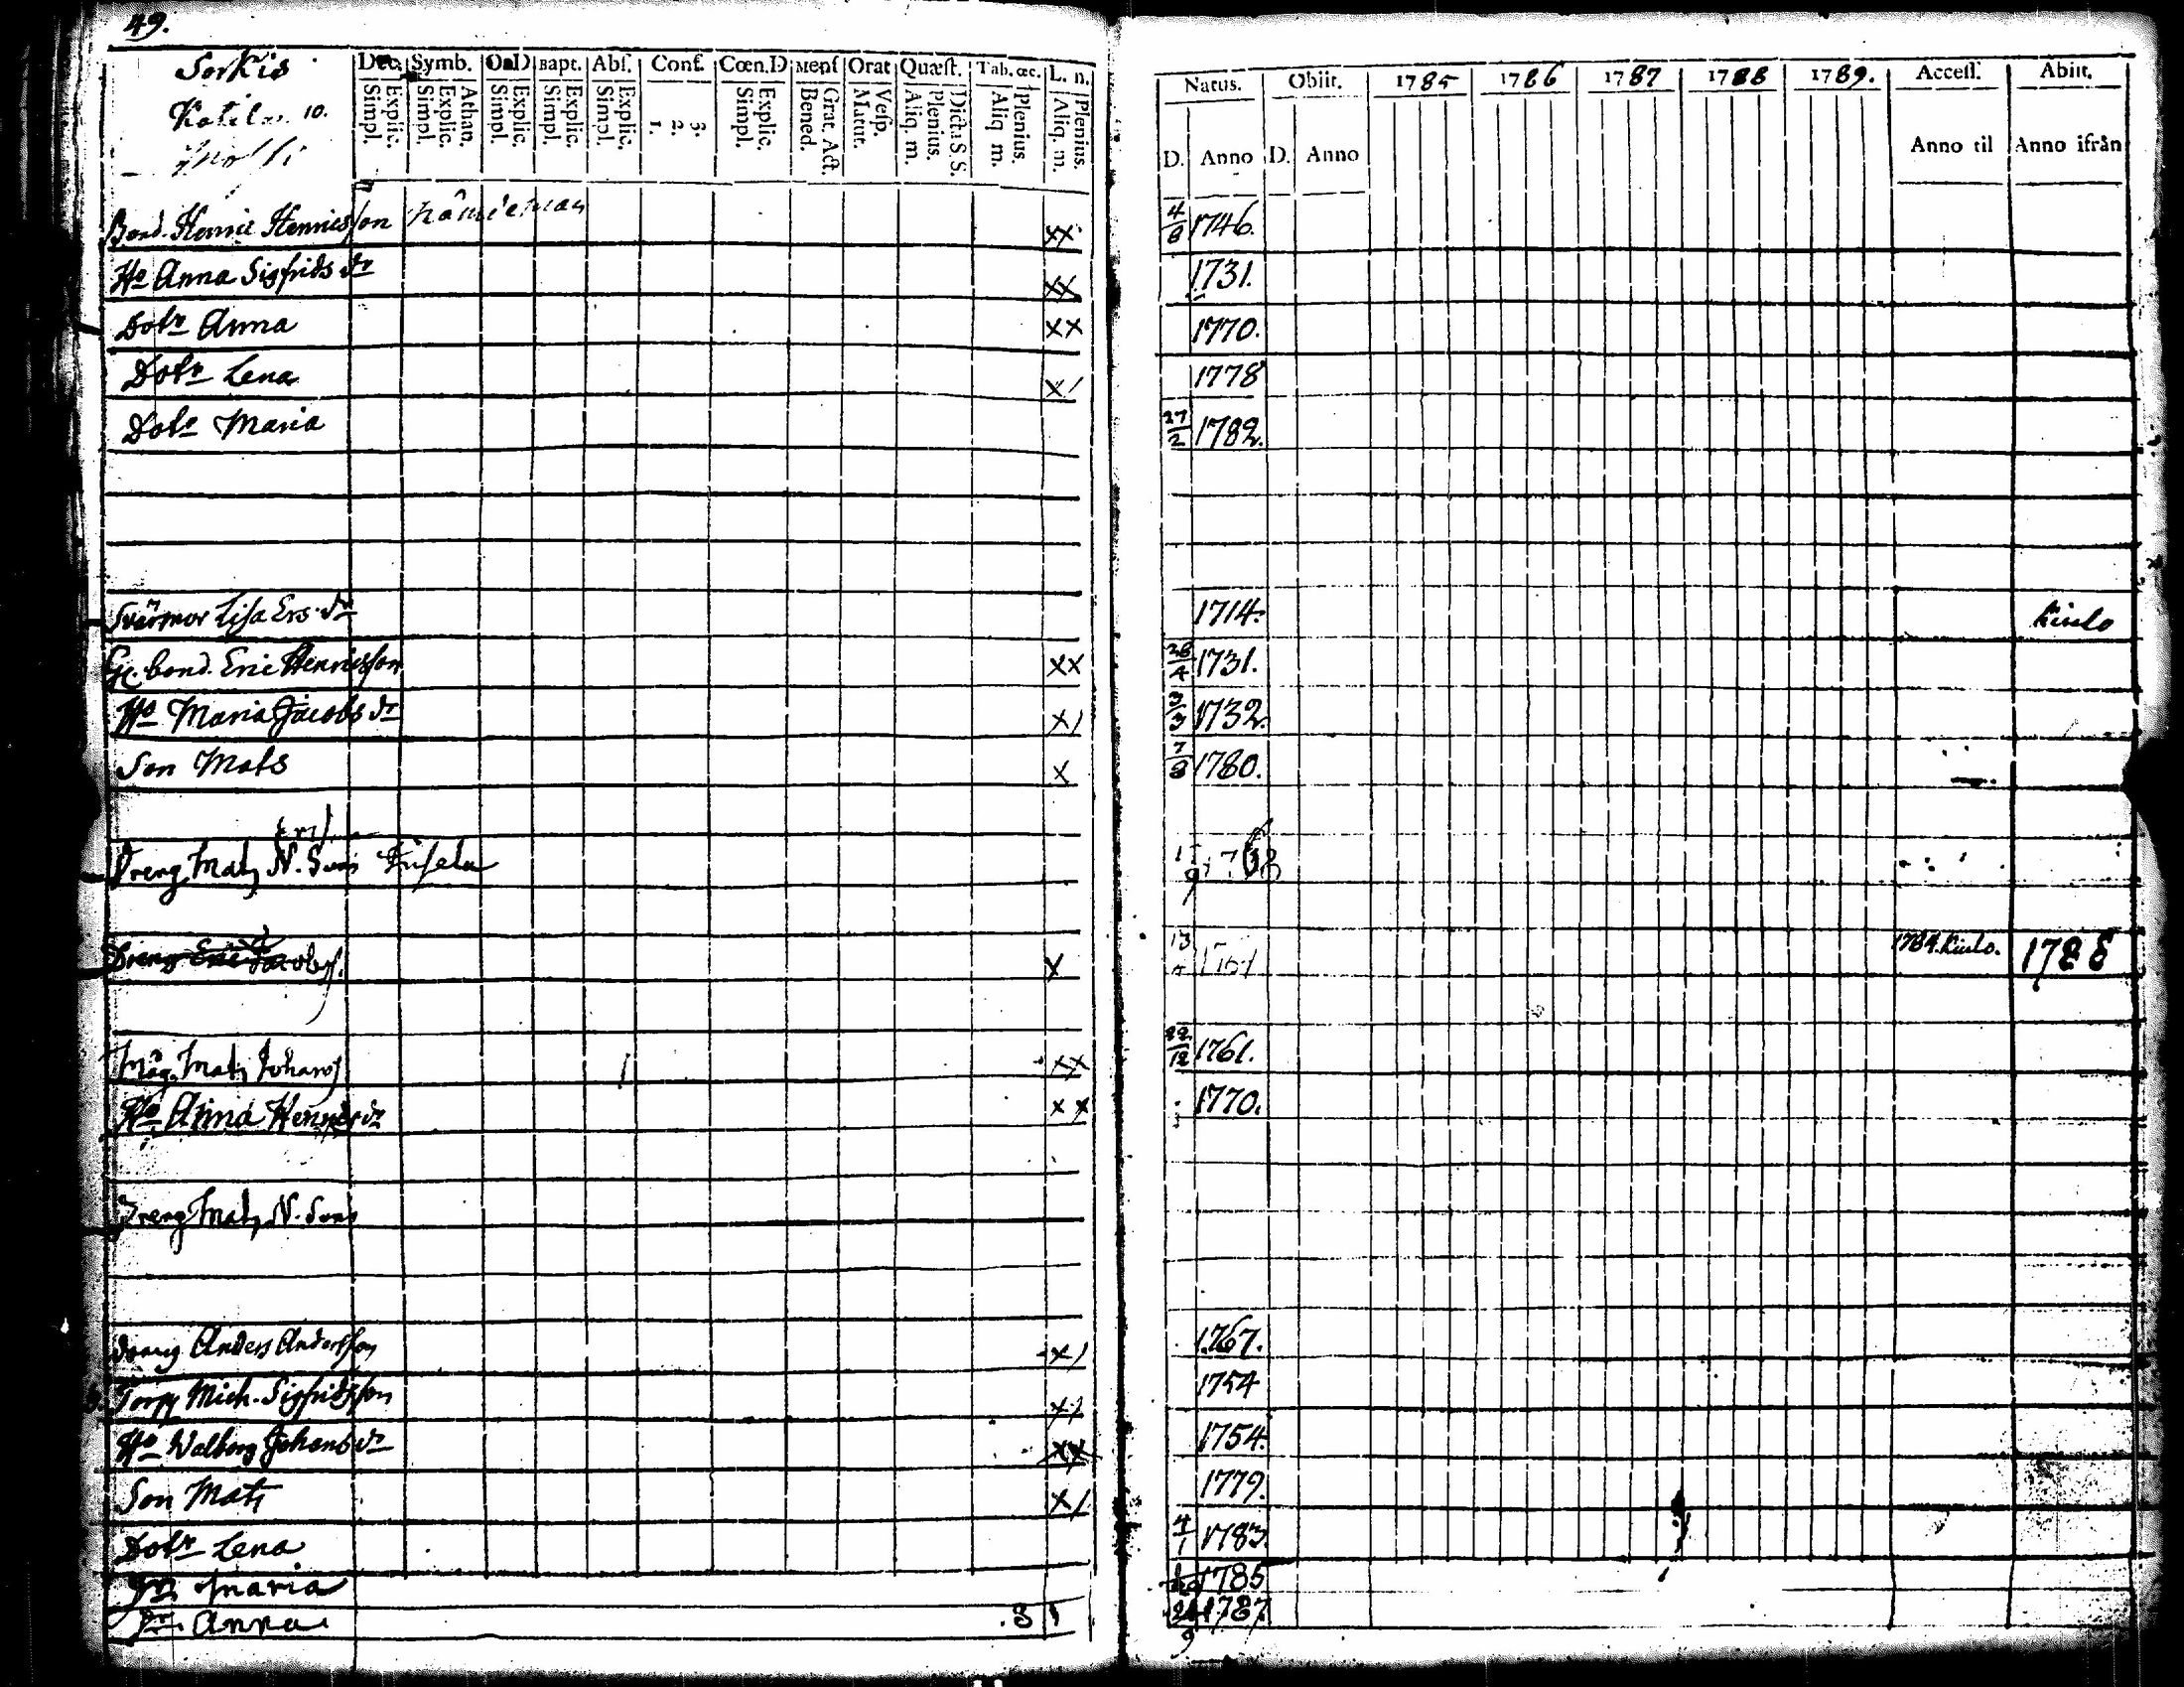 49.
Sorkis
Kotila. 10.
Dec. Symb. Or.D Bapt. Abs. Conf. Cœn.D Mens Orat Quæst. Tab. œc. L. n.
Explic. Simpl. Athan. Explic. Simpl. Explic. Simpl. Explic. Simpl. Explic. Simpl. 3. 2. 1. Explic. Simpl. Grat. Act. Bened. Vesp. Matut. Dicta S.S. Plenius. Aliq. m. Plenius. Aliq m. Plenius. Aliq. m.
Natus. Obiit. 1785 1786 1787 1788 1789. Access. Abiit.
D. Anno D. Anno Anno til Anno ifrån
Bond. Henric Henricsson nämdeman xx 4/8 1746.
Ho Anna Sigfrids dr xx 1731.
Dotr Anna xx 1770.
Dotr Lena x/ 1778
Dotr Maria 27/2 1782.
Svärmor Lisa Ers dr 1714. Kiulo
Gl. bond. Eric Henricsson xx 26/4 1731.
Ho Maria Jacobs dr x/ 3/3 1732.
Son Mats x 7/8 1780.
Dreng Mats N. Son
Dreng Eric Jacobs. x 13 1784. Kiulo. 1788
Måg. Mats Johans xx 22/12 1761.
Ho Anna Henricsdr xx 1770.
Dreng Mats N. Son
Dreng Anders Andersson x/ 1767.
Torp Mich. Sigfridsson x/ 1754
Ho Walborg Johansdr xx 1754.
Son Mats x/ 1779.
Dotr Lena 4/1 1783.
Dr Maria 1785
Dr. Anna 24/9 1787.